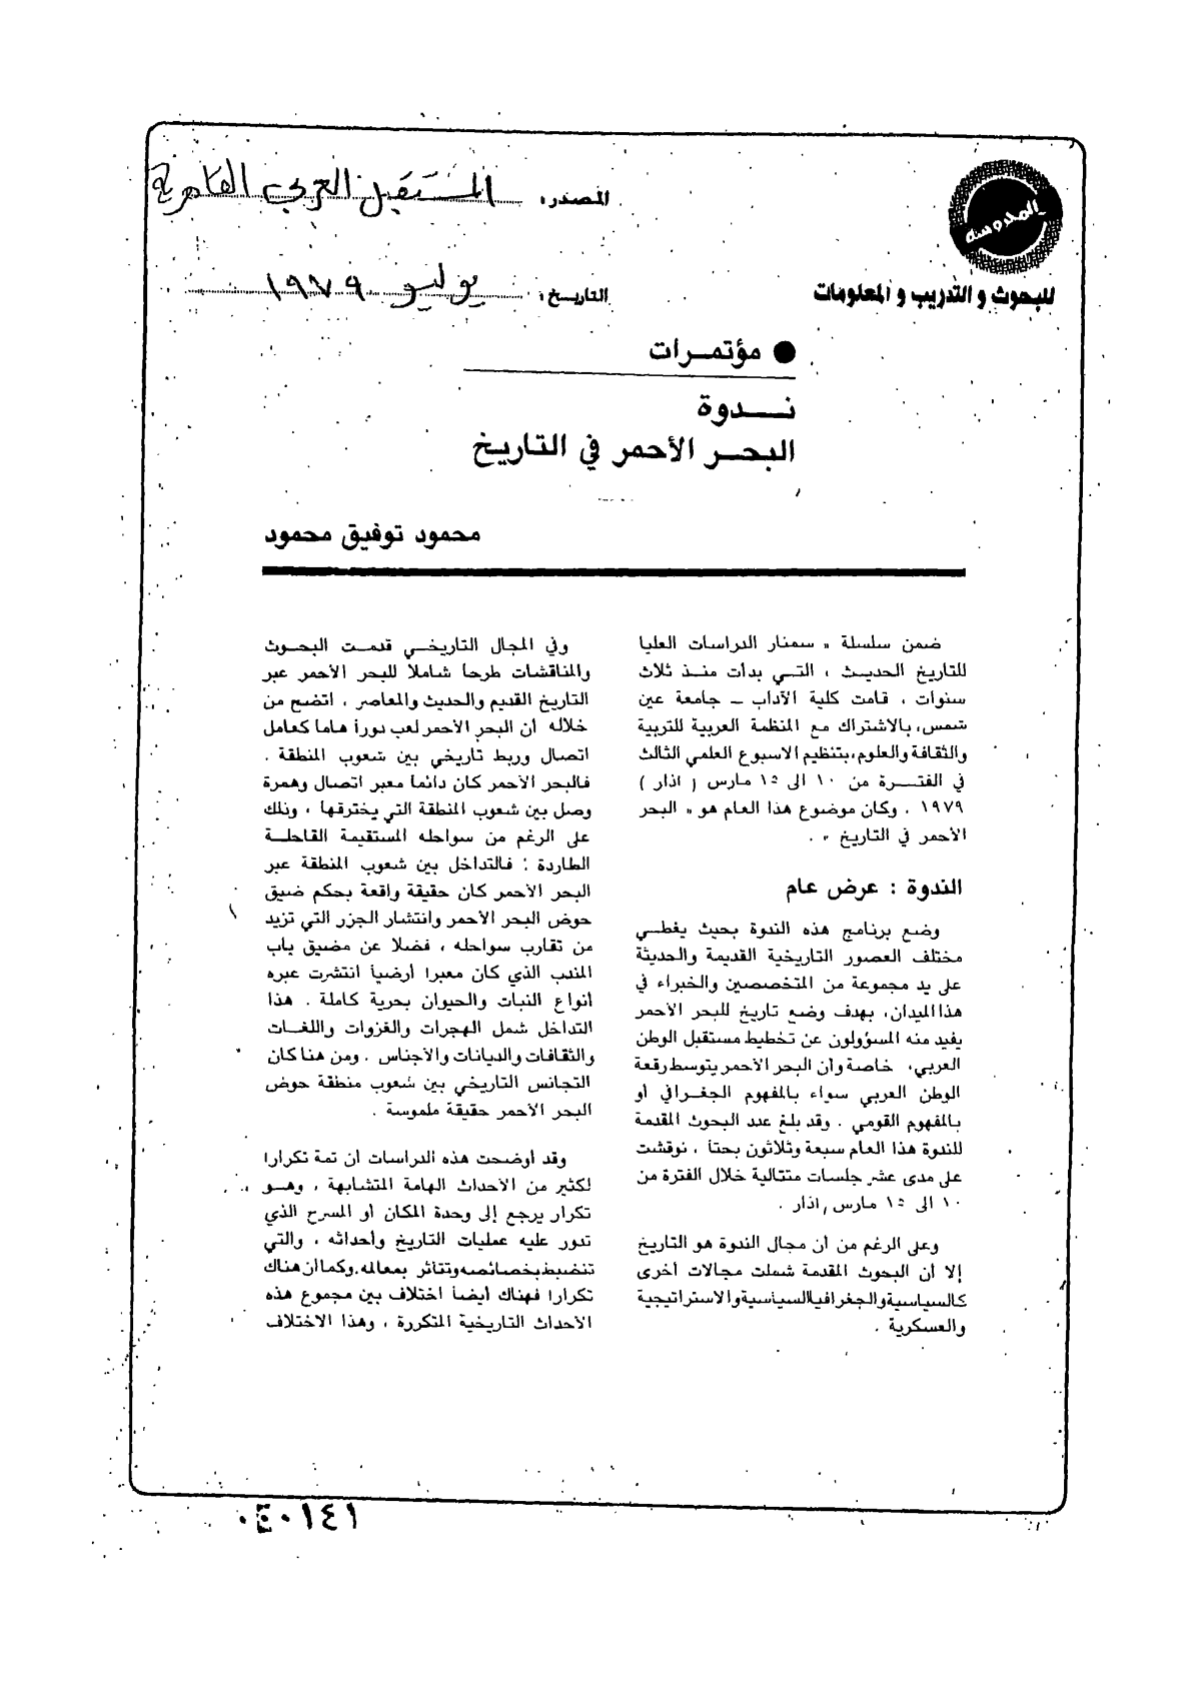 المصدر: المستقبل العربي القاهرية
التاريخ: يوليو ١٩٧٩
المحروسة
للبحوث و التدريب و المعلومات
● مؤتمرات
نـــدوة
البحــر الأحمر في التاريـخ
محمود توفيق محمود
ضمن سلسلة « سمنار الدراسات العليا
للتاريخ الحديث ، التــي بدأت منــذ ثلاث
سنوات ، قامت كلية الآداب ــ جامعة عين
شمس، بالاشتراك مع المنظمة العربية للتربية
والثقافة والعلوم، بتنظيم الاسبوع العلمي الثالث
في الفتــــرة من ١٠ الى ١٥ مارس ( اذار )
١٩٧٩ . وكان موضوع هذا العام هو « البحر
الأحمر في التاريخ » .
الندوة : عرض عام
وضع برنامج هذه الندوة بحيث يغطــي
مختلف العصور التاريخية القديمة والحديثة
على يد مجموعة من المتخصصين والخبراء في
هذا الميدان، بهدف وضع تاريخ للبحر الأحمر
يفيد منه المسؤولون عن تخطيط مستقبل الوطن
العربي، خاصة وأن البحر الأحمر يتوسط رقعة
الوطن العربي سواء بالمفهوم الجغرافي أو
بالمفهوم القومي . وقد بلغ عدد البحوث المقدمة
للندوة هذا العام سبعة وثلاثون بحثاً ، نوقشت
على مدى عشر جلسات متتالية خلال الفترة من
١٠ الى ١٥ مارس / اذار .
وعلى الرغم من أن مجال الندوة هو التاريخ
إلا أن البحوث المقدمة شملت مجالات أخرى
كالسياسية والجغرافيا السياسية والاستراتيجية
والعسكرية .
وفي المجال التاريخــي قدمــت البحــوث
والمناقشات طرحاً شاملاً للبحر الأحمر عبر
التاريخ القديم والحديث والمعاصر ، اتضح من
خلاله أن البحر الأحمر لعب دوراً هاما كعامل
اتصال وربط تاريخي بين شعوب المنطقة .
فالبحر الأحمر كان دائما معبر اتصال وهمزة
وصل بين شعوب المنطقة التي يخترقها ، وذلك
على الرغم من سواحله المستقيمة القاحلــة
الطاردة : فالتداخل بين شعوب المنطقة عبر
البحر الأحمر كان حقيقة واقعة بحكم ضيق
حوض البحر الأحمر وانتشار الجزر التي تزيد
من تقارب سواحله ، فضلا عن مضيق باب
المندب الذي كان معبراً أرضياً انتشرت عبره
أنواع النبات والحيوان بحرية كاملة . هذا
التداخل شمل الهجرات والغزوات واللغــات
والثقافات والديانات والأجناس . ومن هنا كان
التجانس التاريخي بين شعوب منطقة حوض
البحر الأحمر حقيقة ملموسة .
وقد أوضحت هذه الدراسات أن ثمة تكراراً
لكثير من الأحداث الهامة المتشابهة ، وهــو
تكرار يرجع إلى وحدة المكان أو المسرح الذي
تدور عليه عمليات التاريخ وأحداثه ، والتي
تنضبط بخصائصه وتتأثر بمعالمه. وكما أن هناك
تكراراً فهناك أيضاً اختلاف بين مجموع هذه
الأحداث التاريخية المتكررة ، وهذا الاختلاف